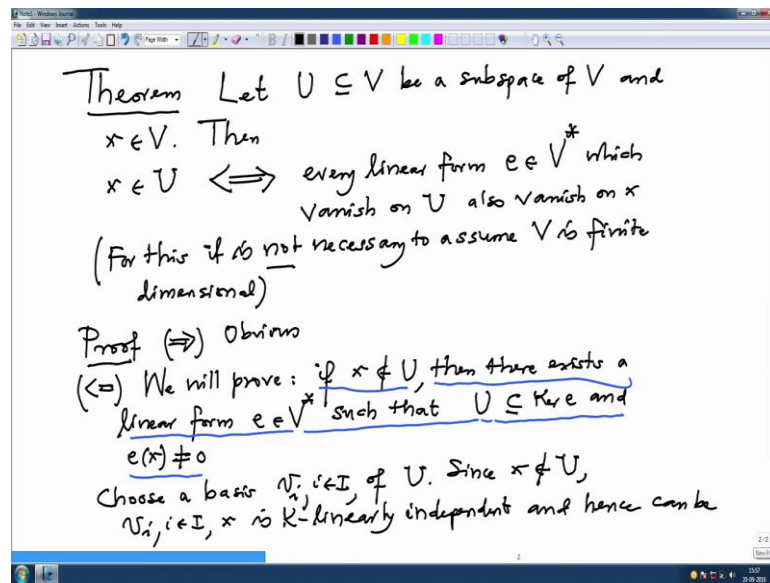 Note1 - Windows Journal
File Edit View Insert Actions Tools Help
Page Width
Theorem Let U ⊆ V be a subspace of V and
x ∈ V. Then
x ∈ U ⟺ every linear form e ∈ V* which
vanish on U also vanish on x
(For this if is not necessary to assume V is finite
dimensional)
Proof (⇒) Obvious
(⇐) We will prove: if x ∉ U, then there exists a
linear form e ∈ V* such that U ⊆ Ker e and
e(x) ≠ 0
Choose a basis v_i, i∈I, of U. Since x ∉ U,
v_i, i∈I, x is K-linearly independent and hence can be
2
2/2
15:57